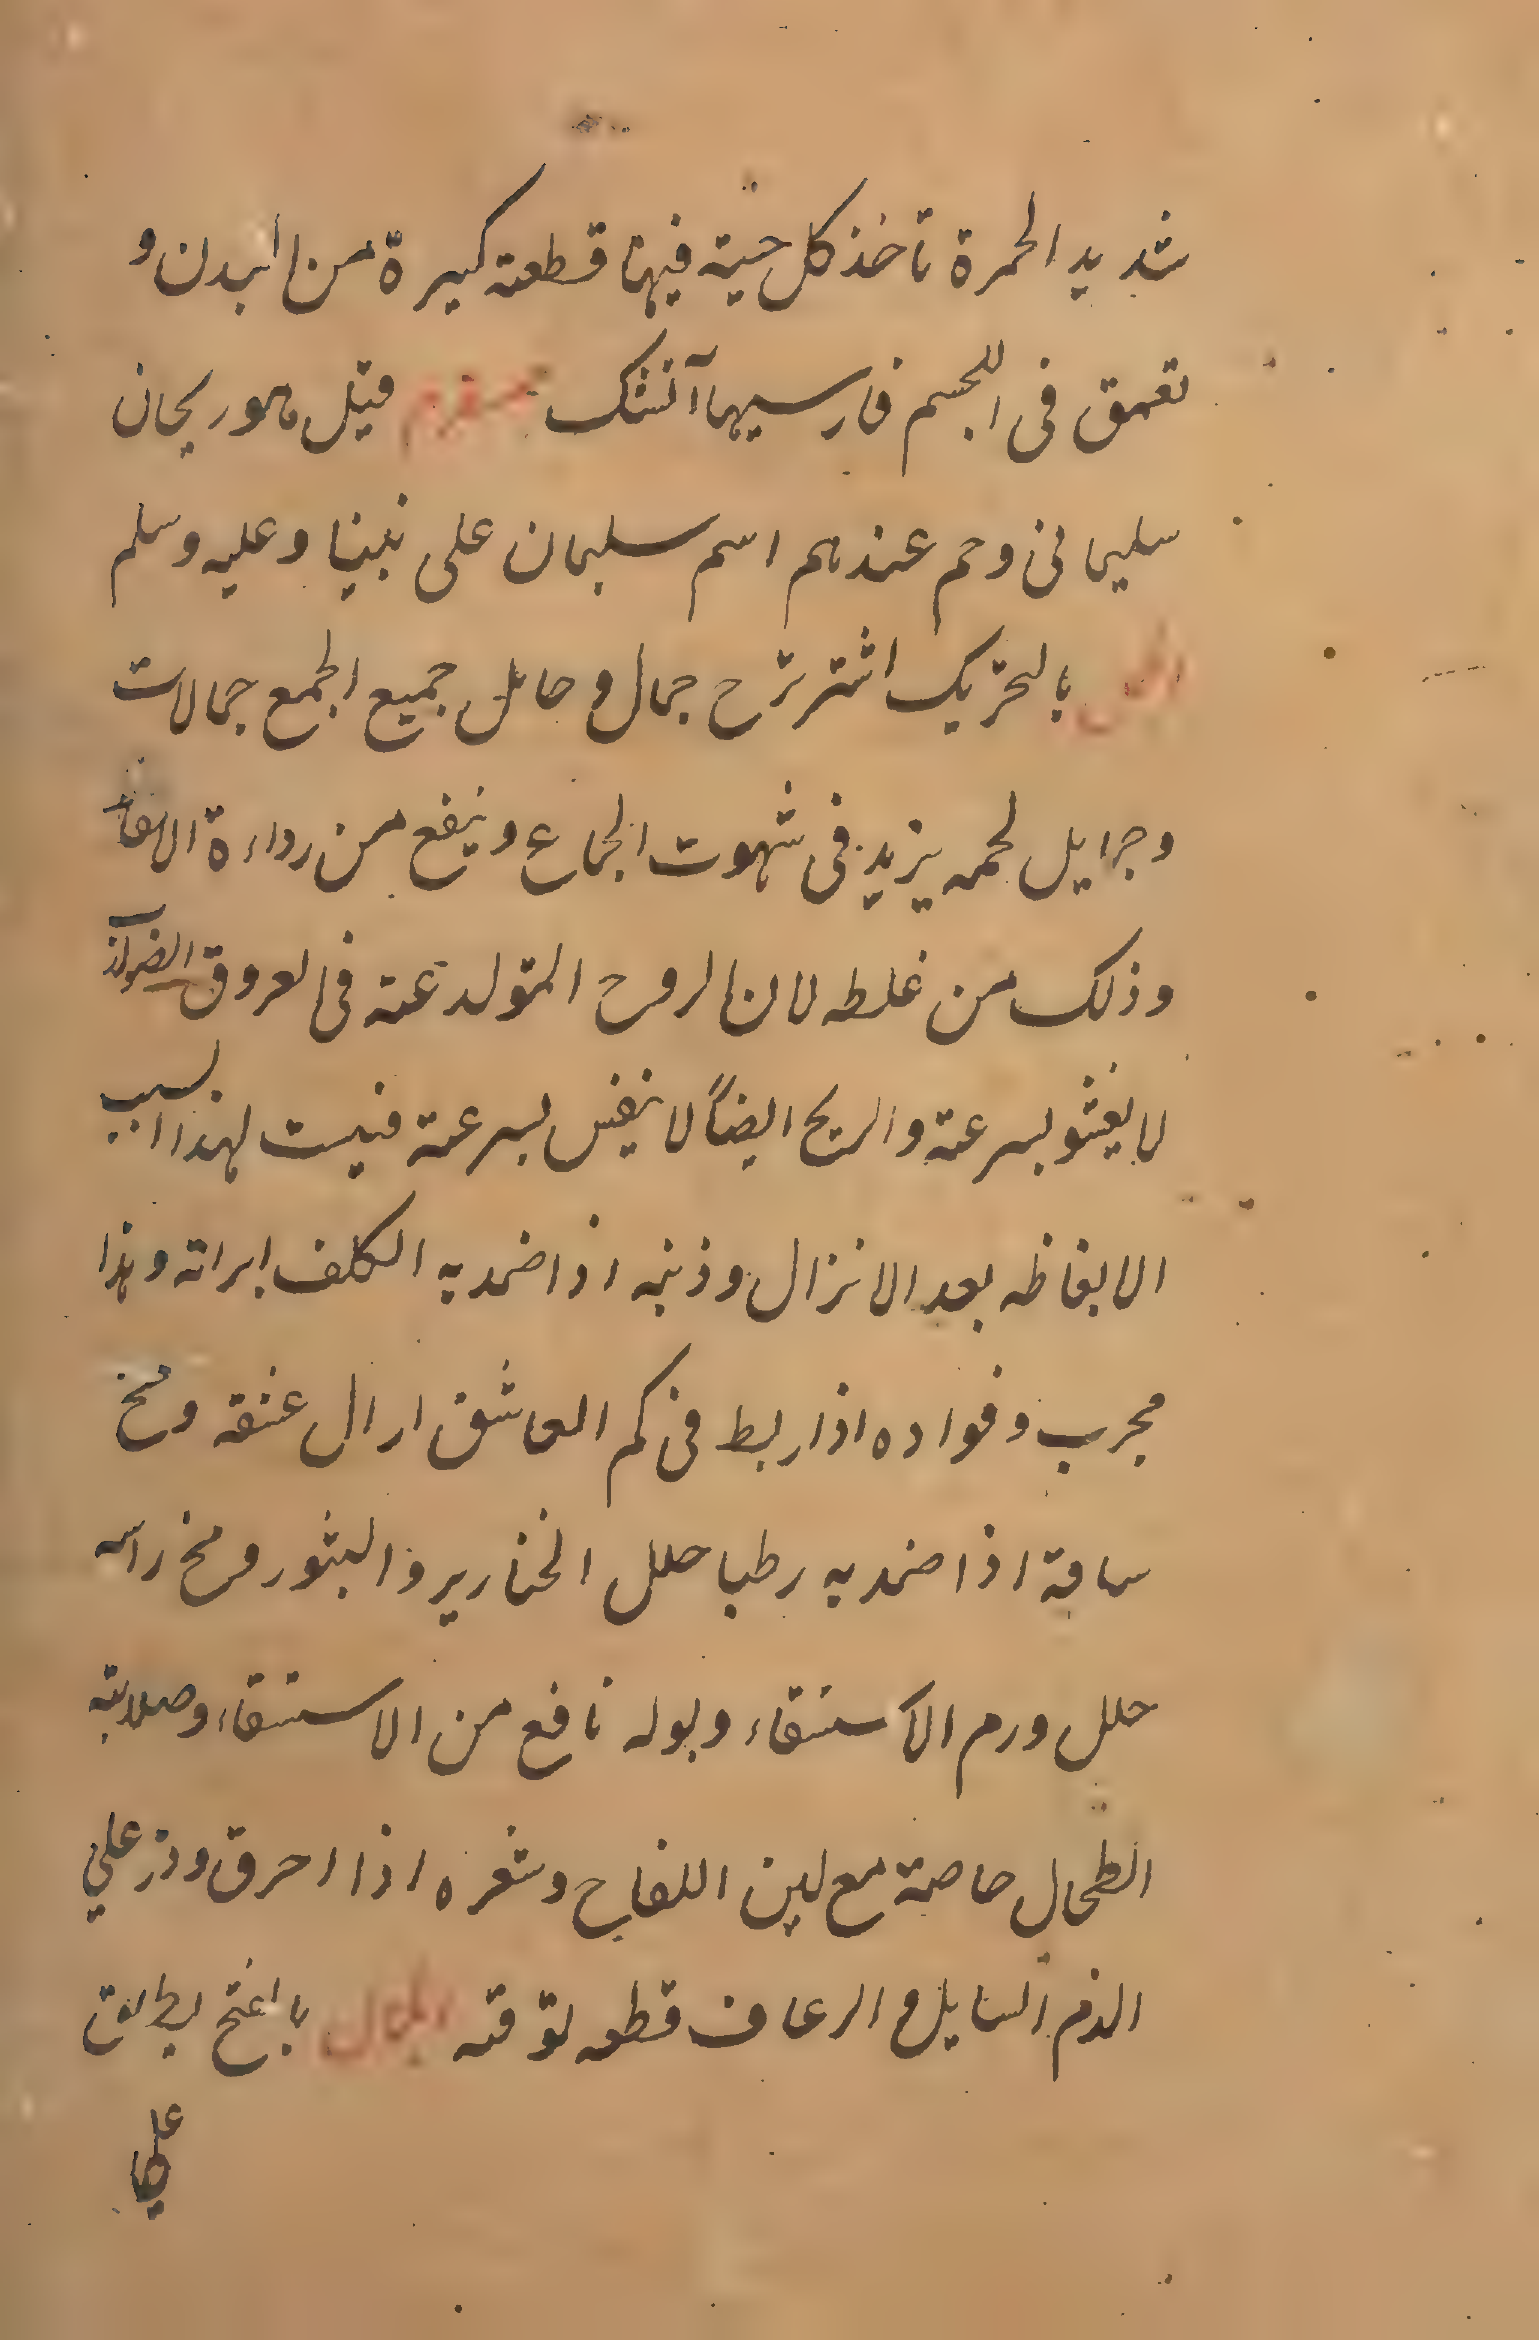 شديد الحمرة تاخذ كل حبة فيها قطعة كبيرة من البدن و
تعمق فى الجسم فارسيها آتشك جمسفرم قيل هو ريحان
سليمانى وجم عندهم اسم سليمان على نبينا وعليه وسلم
الجمل بالتحريك اشتر ترح جمال و حامل جميع الجمع جمالات
وجرايل لحمه يزيد فى شهوت الجماع وينفع من رداءة الانعاظ
وذلك من غلطه لان الروح المتولد عنه فى العروق الضوارب
لا يغشو بسرعة والريح ايضاً لا ينفس بسرعة فيست لهذا السبب
الانعاظه بعد الانزال وذنبه اذا ضمد به الكلف ابراته وهذا
مجرب وفواده اذا ربط فى كم العاشق ازال عشقه ومخ
ساقه اذا ضمد به رطبا حلل الخنازير والبثور ومخ راسه
حلل ورم الاستسقاء وبوله نافع من الاستسقاء وصلابته
الطحال خاصة مع لبن اللقاح وشعره اذا احرق وذر علي
الدم السايل و الرعاف قطعه لوقته بالفتح يطلق
علي